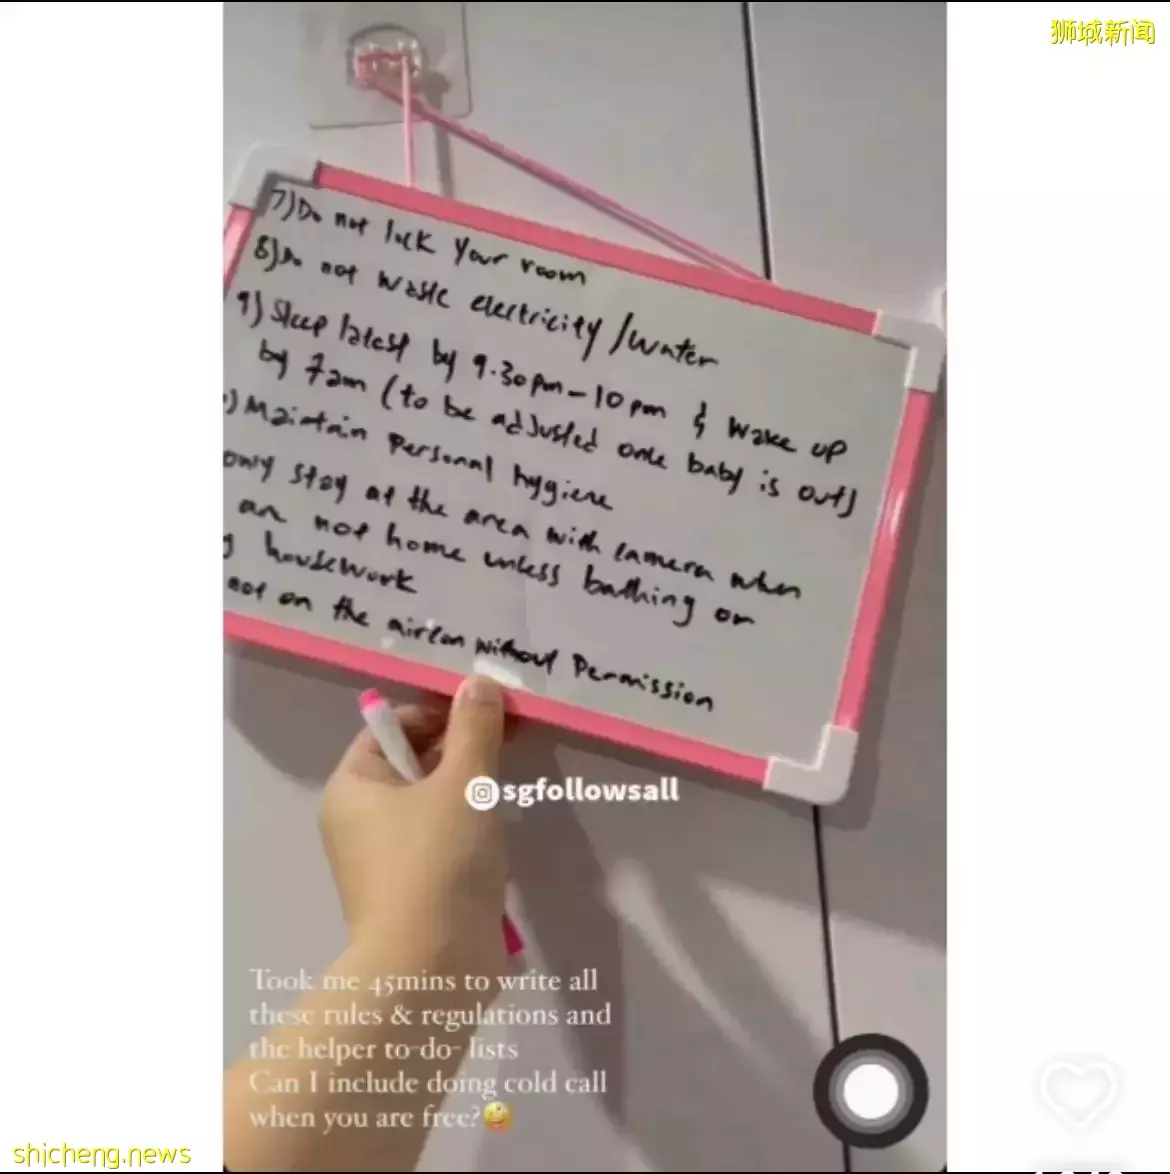 狮城新闻
7) Do not lock your room
8) Do not waste electricity / water
9) Sleep latest by 9.30pm - 10pm & wake up
by 7am (to be adjusted once baby is out)
) Maintain personal hygiene
only stay at the area with camera when
are not home unless bathing or
g housework
not on the aircon without permission
sgfollowsall
Took me 45mins to write all
these rules & regulations and
the helper to-do- lists
Can I include doing cold call
when you are free?🤪
shicheng.news